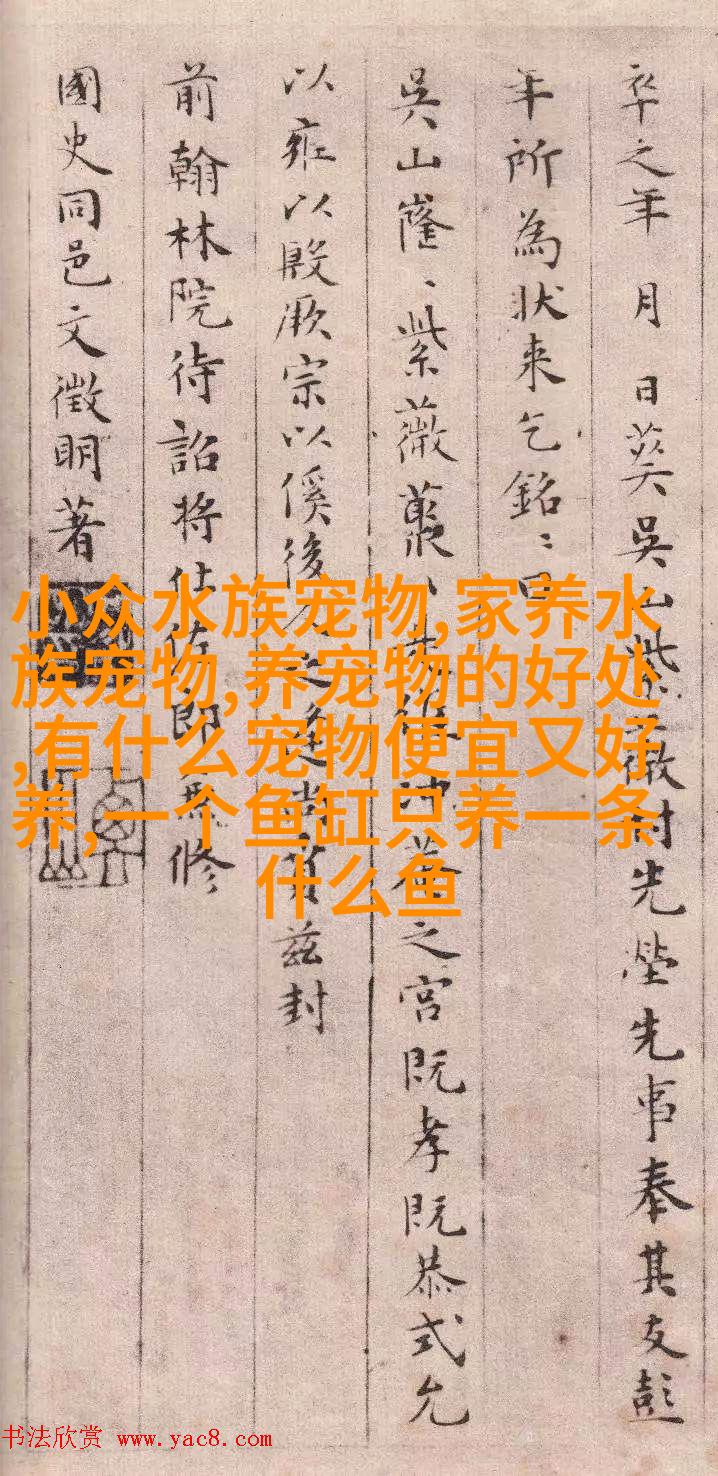 卒之年 月 日葬吴山紫薇村先塋先事奉其友彭
年所為狀来乞銘〻曰
吳山窿〻紫薇叢〻
之宮既孝既恭式允
以雍以殷厥宗以傒後
兹封
前翰林院待詔將仕佐郎
修
國史同邑文徵明著
小众水族宠物,家养水
族宠物,养宠物的好处
,有什么宠物便宜又好
养,一个鱼缸只养一条
什么鱼
书法欣赏 www.yac8.com